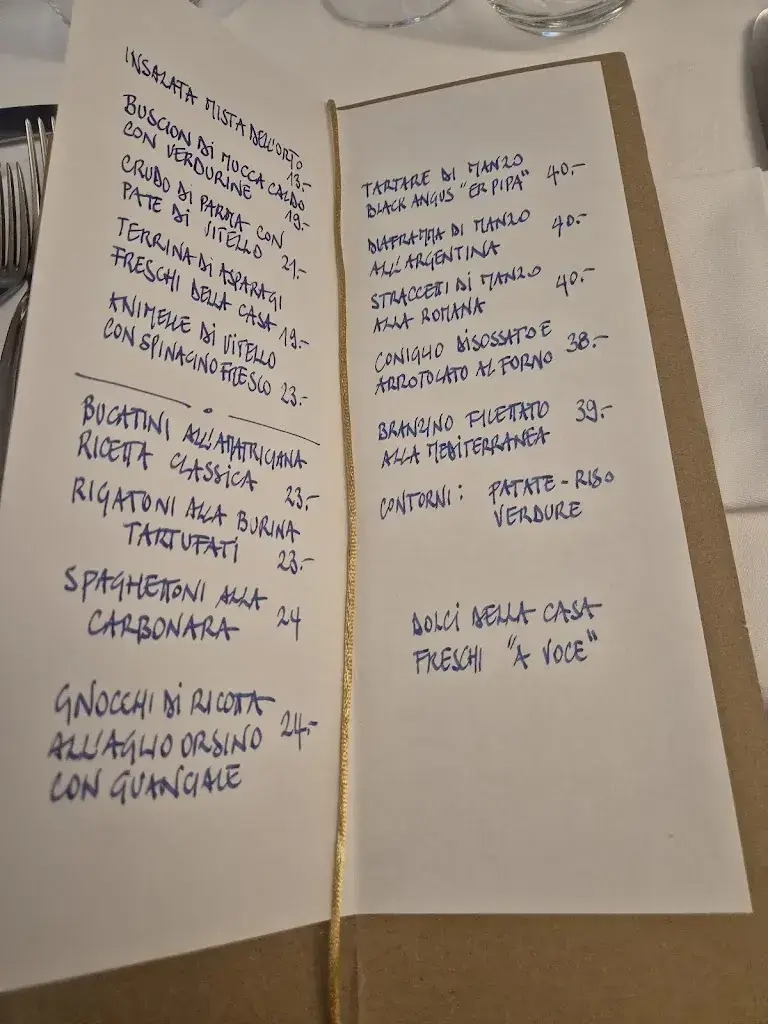 INSALATA MISTA DELL'ORTO
13.-
BUSCION DI MUCCA CALDO
CON VERDURINE 19.-
CRUDO DI PARMA CON
PATE DI VITELLO 21.-
TERRINA DI ASPARAGI
FRESCHI DELLA CASA 19.-
ANIMELLE DI VITELLO
CON SPINACINO FRESCO 23.-
BUCATINI ALL'AMATRICIANA
RICETTA CLASSICA 23.-
RIGATONI ALLA BURINA
TARTUFATI 23.-
SPAGHETTONI ALLA
CARBONARA 24
GNOCCHI DI RICOTTA
ALL'AGLIO ORSINO 24.-
CON GUANCIALE
TARTARE DI MANZO
BLACK ANGUS "ER PIPA" 40.-
DIAFRAMMA DI MANZO
ALL'ARGENTINA 40.-
STRACCETTI DI MANZO
ALLA ROMANA 40.-
CONIGLIO DISOSSATO E
ARROTOLATO AL FORNO 38.-
BRANZINO FILETTATO 39.-
ALLA MEDITERRANEA
CONTORNI: PATATE - RISO
VERDURE
DOLCI DELLA CASA
FRESCHI "A VOCE"